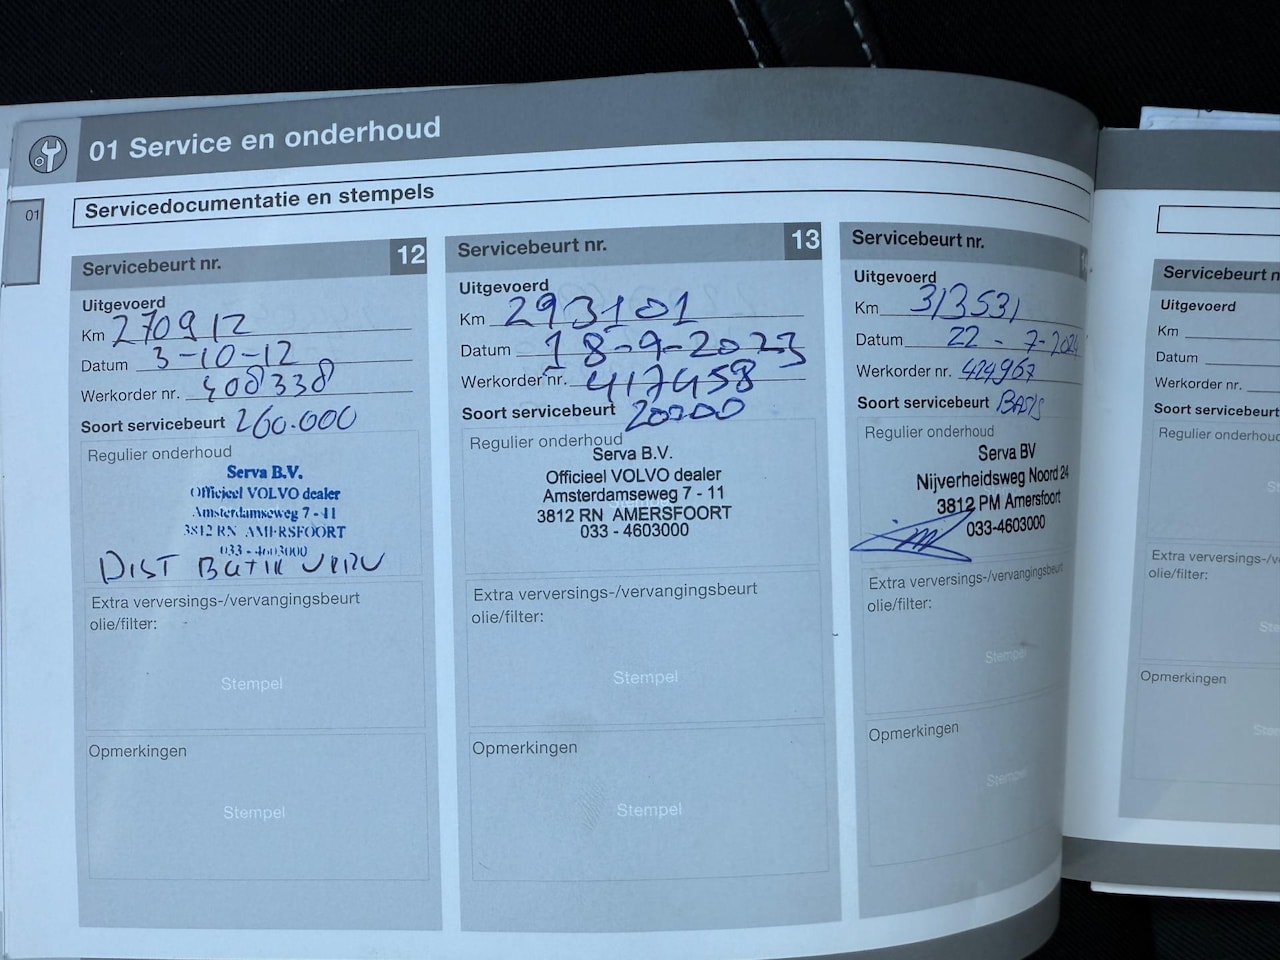 01 Service en onderhoud
01
Servicedocumentatie en stempels
Servicebeurt nr. 12
Uitgevoerd
Km 270912
Datum 3-10-12
Werkorder nr. 408338
Soort servicebeurt 260.000
Regulier onderhoud
Serva B.V.
Officieel VOLVO dealer
Amsterdamseweg 7 - 11
3812 RN AMERSFOORT
033 - 4603000
DIST
Extra verversings-/vervangingsbeurt
olie/filter:
Stempel
Opmerkingen
Stempel
Servicebeurt nr. 13
Uitgevoerd
Km 293101
Datum 18-9-2023
Werkorder nr. 417458
Soort servicebeurt 20000
Regulier onderhoud
Serva B.V.
Officieel VOLVO dealer
Amsterdamseweg 7 - 11
3812 RN AMERSFOORT
033 - 4603000
Extra verversings-/vervangingsbeurt
olie/filter:
Stempel
Opmerkingen
Stempel
Servicebeurt nr.
Uitgevoerd
Km 313531
Datum 22-7-2024
Werkorder nr. 424967
Soort servicebeurt BASIS
Regulier onderhoud
Serva BV
Nijverheidsweg Noord 24
3812 PM Amersfoort
033-4603000
Extra verversings-/vervangingsbeurt
olie/filter:
Stempel
Opmerkingen
Stempel
Servicebeurt n
Uitgevoerd
Km
Datum
Werkorder nr.
Soort servicebeurt
Regulier onderhoud
Extra verversings-/v
olie/filter:
Opmerkingen